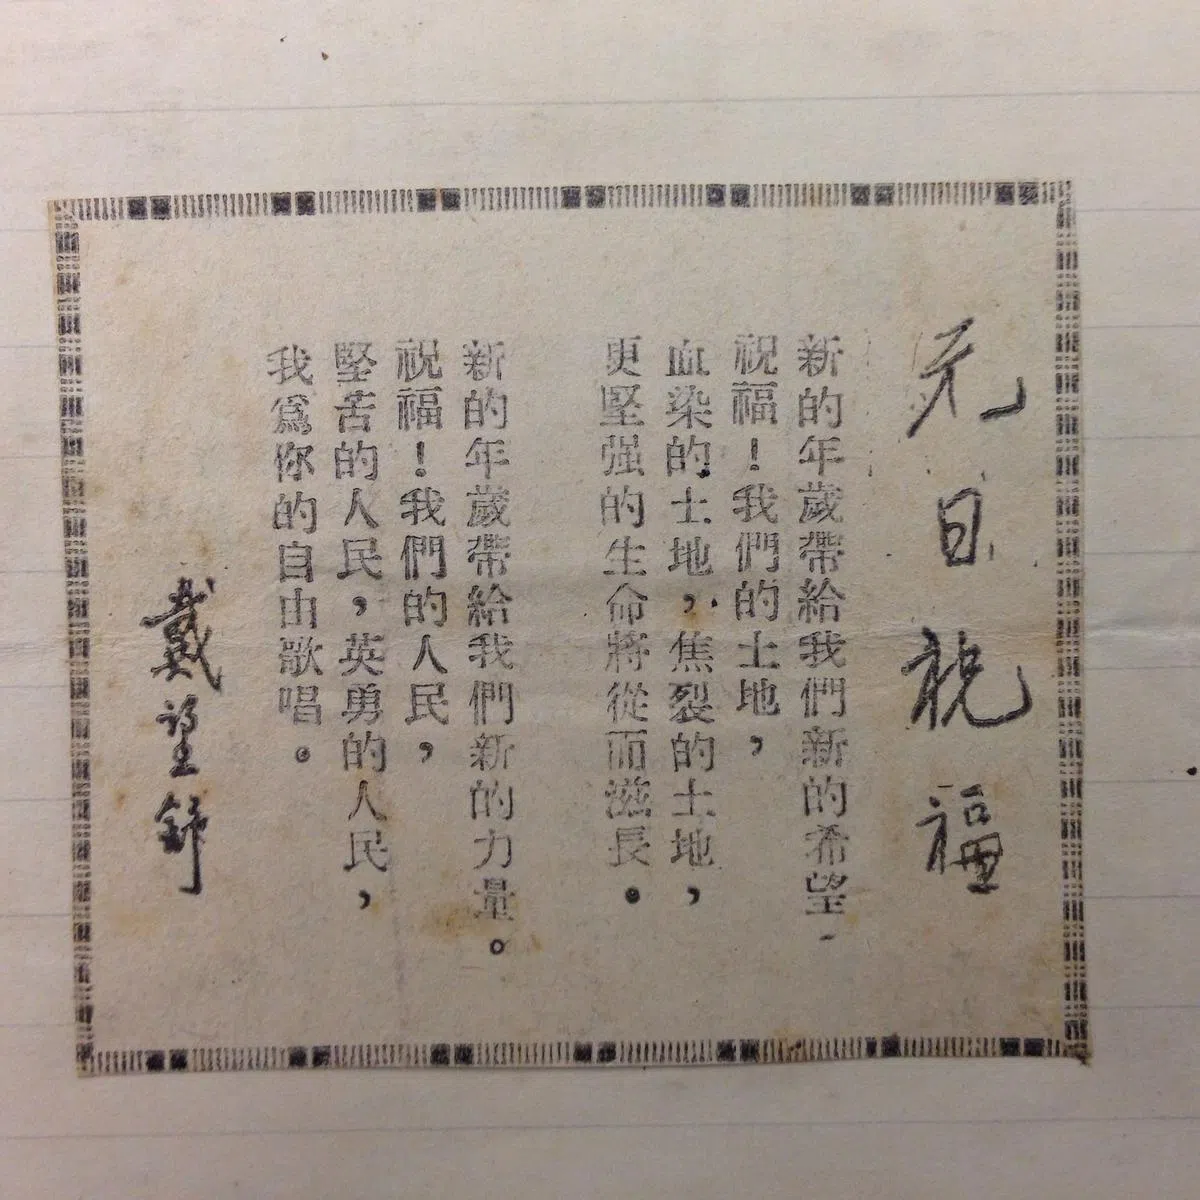 元日祝福
新的年歲帶給我們新的希望
祝福！我們的土地，
血染的土地，焦裂的土地，
更堅强的生命將從而滋長。
新的年歲帶給我們新的力量。
祝福！我們的人民，
堅苦的人民，英勇的人民，
我爲你的自由歌唱。
戴望舒